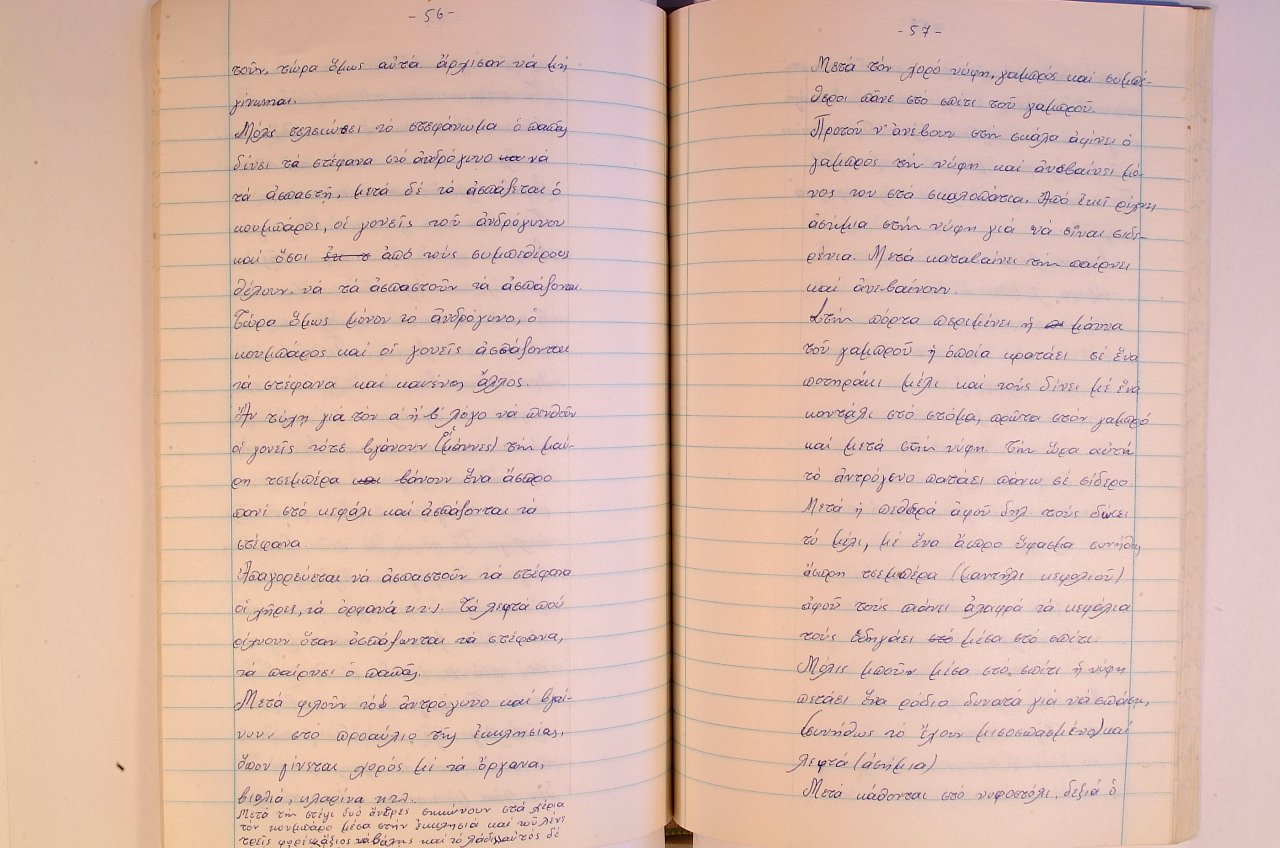 - 56 -
τοῦν, τώρα ὅμως αὐτά ἄρχισαν νά μή
γίνωνται.
Μόλις τελειώσει τό στεφάνωμα ὁ παπᾶς
δίνει τά στέφανα στό ἀνδρόγυνο νά
τά ἀσπαστῆ, μετά δέ τά ἀσπάζεται ὁ
κουμπάρος, οἱ γονεῖς τοῦ ἀνδρόγυνου
καί ὅσοι ἀπό τούς συμπεθέρους
θέλουν νά τά ἀσπαστοῦν τά ἀσπάζονται.
Τώρα ὅμως μόνον τό ἀνδρόγυνο, ὁ
κουμπάρος καί οἱ γονεῖς ἀσπάζονται
τά στέφανα καί κανένας ἄλλος.
Ἄν τύχη γιά τόν α ἤ β λόγο νά πενθοῦν
οἱ γονεῖς τότε βγάνουν (οἱ μάννες) τήν μαύ-
ρη τσεμπέρα βάνουν ἕνα ἄσπρο
πανί στό κεφάλι καί ἀσπάζονται τά
στέφανα
Ἀπαγορεύεται νά ἀσπαστοῦν τά στέφανα
οἱ χῆρες, τά ὀρφανά κ.τ.λ. Τά λεφτά πού
ρίχνουν ὅταν ἀσπάζωνται τά στέφανα,
τά παίρνει ὁ παπᾶς.
Μετά φιλοῦν τό ἀντρόγυνο καί βγαί-
νουν στό προαύλιο τῆς ἐκκλησίας,
ὅπου γίνεται χορός μέ τά ὄργανα,
βιολιά, κλαρίνα κ.τ.λ.
Μετά τήν στέψι δυό ἄνδρες σηκώνουν στά χέρια
τόν κουμπάρο μέσα στήν ἐκκλησία καί τοῦ λένε
τρεῖς φορές ἄξιος νά βάλης καί τό λάδι, αὐτός δέ
- 57 -
Μετά τόν χορό νύφη, γαμπρός καί συμπέ-
θεροι πᾶνε στό σπίτι τοῦ γαμπροῦ.
Προτοῦ ν' ἀνέβουν στήν σκάλα ἀφίνει ὁ
γαμπρός τήν νύφη καί ἀνεβαίνει μό-
νος του στά σκαλοπάτια. Ἀπό ἐκεῖ ρίχνει
ἀσήμια στήν νύφη γιά νά εἶναι σιδε-
ρένια. Μετά καταβαίνει τήν παίρνει
καί ἀνεβαίνουν.
Στήν πόρτα περιμένει ἡ μάννα
τοῦ γαμπροῦ ἡ ὁποία κρατάει σέ ἕνα
ποτηράκι μέλι καί τούς δίνει μέ ἕνα
κουτάλι στό στόμα, πρῶτα στόν γαμπρό
καί μετά στήν νύφη. Τήν ὥρα αὐτή
τό ἀντρόγυνο πατάει πάνω σέ σίδερο
Μετά ἡ πεθερά ἀφοῦ δηλ τούς δώσει
τό μέλι, μέ ἕνα ἄσπρο ὕφασμα συνήθως
ἄσπρη τσεμπέρα (μαντήλι κεφαλιοῦ)
ἀφοῦ τούς πιάνει ἀλαφρά τά κεφάλια
τούς ὁδηγάει μέσα στό σπίτι.
Μόλις μποῦν μέσα στό σπίτι ἡ νύφη
πετάει ἕνα ρόδιο δυνατά γιά νά σπάση,
(συνήθως τό ἔχουν μισοσπασμένο) καί
λεφτά (ἀσήμια)
Μετά κάθονται στό νυφοστόλι, δεξιά ὁ